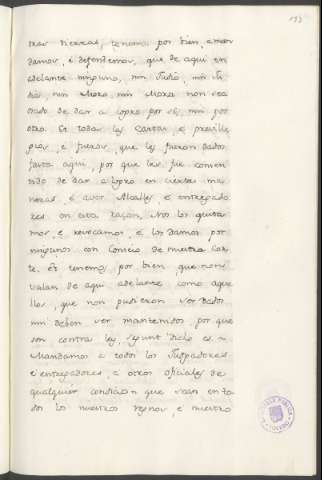 193
tras tierras, tenemos por bien, e man
damos, e defendemos, que de aqui en
adelante ninguno, nin Judio, nin Ju
dia nin Moro, nin Mora non sea
osado de dar a logro por si, nin por
otro. Et todas las Cartas, e preville
gios, e fueros, que les fueron dados
fasta aqui, por que les fue consen
tido de dar a logro en ciertas ma
neras, e aver Alcalles e entregado
res en esta raçon, Nos los quita
mos, e revocamos, e los damos por
ningunos con Consejo de nuestra Cor
te. Et tenemos por bien, que non
valan de aqui adelante como aque
llos, que non pudieron ser dados
nin deben ser mantenidos, por que
son contra ley, segunt Dicho es ~
Mandamos a todos los Juzgadores
e entregadores, e otros oficiales de
qualquier condicion que sean en to
dos los nuestros regnos, e nuestro